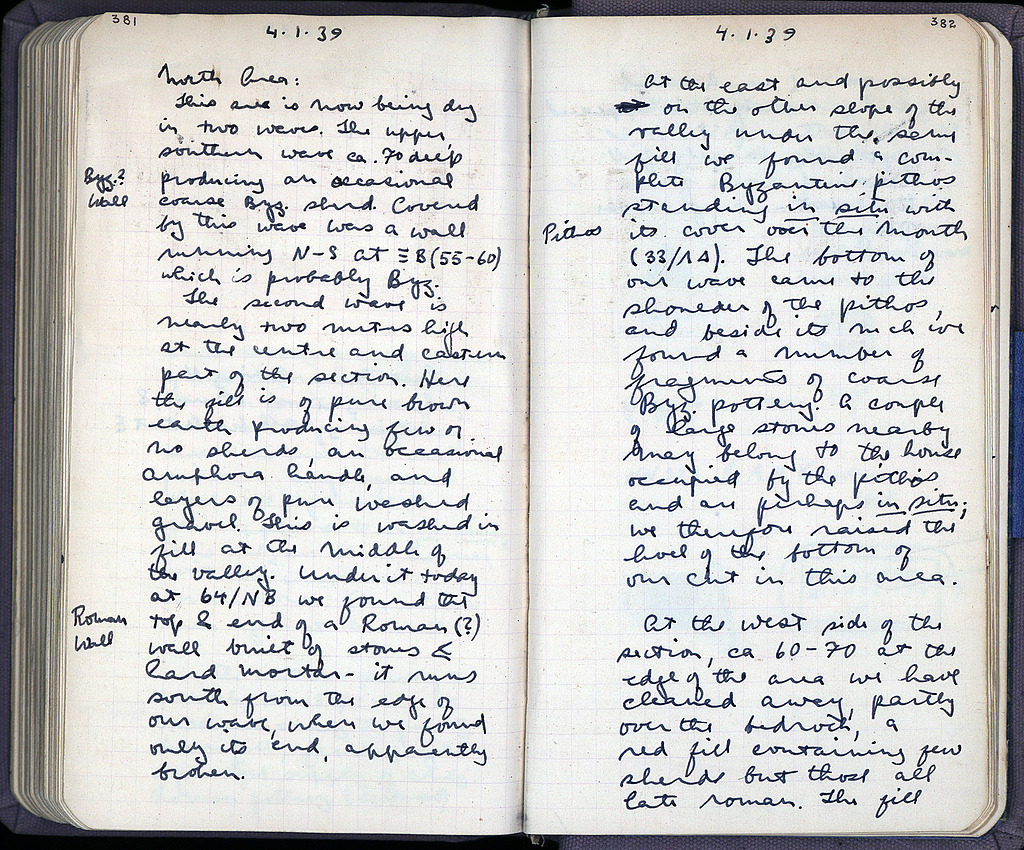 381
4.1.39
North Area:
This area is now being dug
in two waves. The upper
southern wave ca. 70 deep
Byz.?
Wall
producing an occasional
coarse Byz. sherd. Covered
by this wave was a wall
running N-S at ΞB(55-60)
which is probably Byz.
The second wave is
nearly two metres high
at the centre and eastern
part of the section. Here
the fill is of pure brown
earth producing few or
no sherds, an occasional
amphora handle, and
layers of pure washed
gravel. This is washed in
fill at the middle of
the valley. Under it today
at 64/NB we found the
Roman
Wall
top & end of a Roman (?)
wall built of stones &
hard mortar - it runs
south from the edge of
our wave, when we found
only its end, apparently
broken.
382
4.1.39
At the east and possibly
on the other slope of the
valley under the same
fill we found a com-
plete Byzantine pithos
standing in situ with
Pithos
its cover over the mouth
(33/ΙΔ). The bottom of
our wave came to the
shoulder of the pithos,
and beside its neck we
found a number of
fragments of coarse
Byz. pottery. A couple
of large stones nearby
may belong to the house
occupied by the pithos
and are perhaps in situ;
we therefore raised the
level of the bottom of
our cut in this area.
At the west side of the
section, ca 60-70 at the
edge of the area we have
cleaned away, partly
over the bedrock, a
red fill containing few
sherds but those all
late roman. The fill